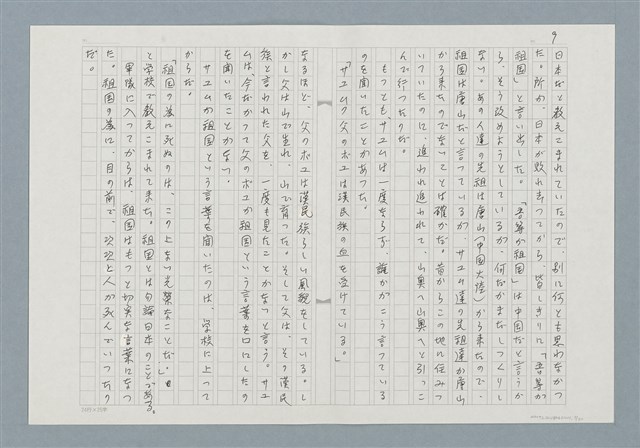 9
日本だと教えこまれていたので、別に何とも思わなかつ
た。所が、日本が敗れさつてから、皆しきりに「吾等が
祖国」と言い出した。「吾等が祖国」は中国だと言うか
ら、そう改めようとしているが、何だかまだしつくりし
ない。あの人達の先祖は唐山(中国大陸)から来たので、
祖国は唐山だと言つているが、サユム達の先祖達が唐山
から来たのでないことは確かだ。昔からこの地に住みつ
いていたのに、追われ追われて、山奥へ山奥へと引つこ
んで行つたのだ。
もつとも、サユムは一度ならず、誰かがこう言つている
のを聞いたことがあつた。
「サユムの父のボユは漢民族の血を受けている。」
なるほど、父のボユは漢民族らしい風貌をしている。し
かし父は山で生れ、山で育つた。そして父は、その漢民
族と言われた父を、一度も見たことがなつと言う。サユ
ムは、今だかつて父のボユが祖国という言葉を口にしたの
を聞いたことがない。
サユムが祖国という言葉を聞いたのは、学校に上つて
からだ。
「祖国の為に死ぬのは、この上ない光栄なことだ。」
と学校で教えこまれて来た。祖国とは勿論日本のことである。
軍隊に入つてからは、祖国はもつと切実な言葉になつ
た。祖国の為に、目の前で、次次と人が死んでいつたの
だ。